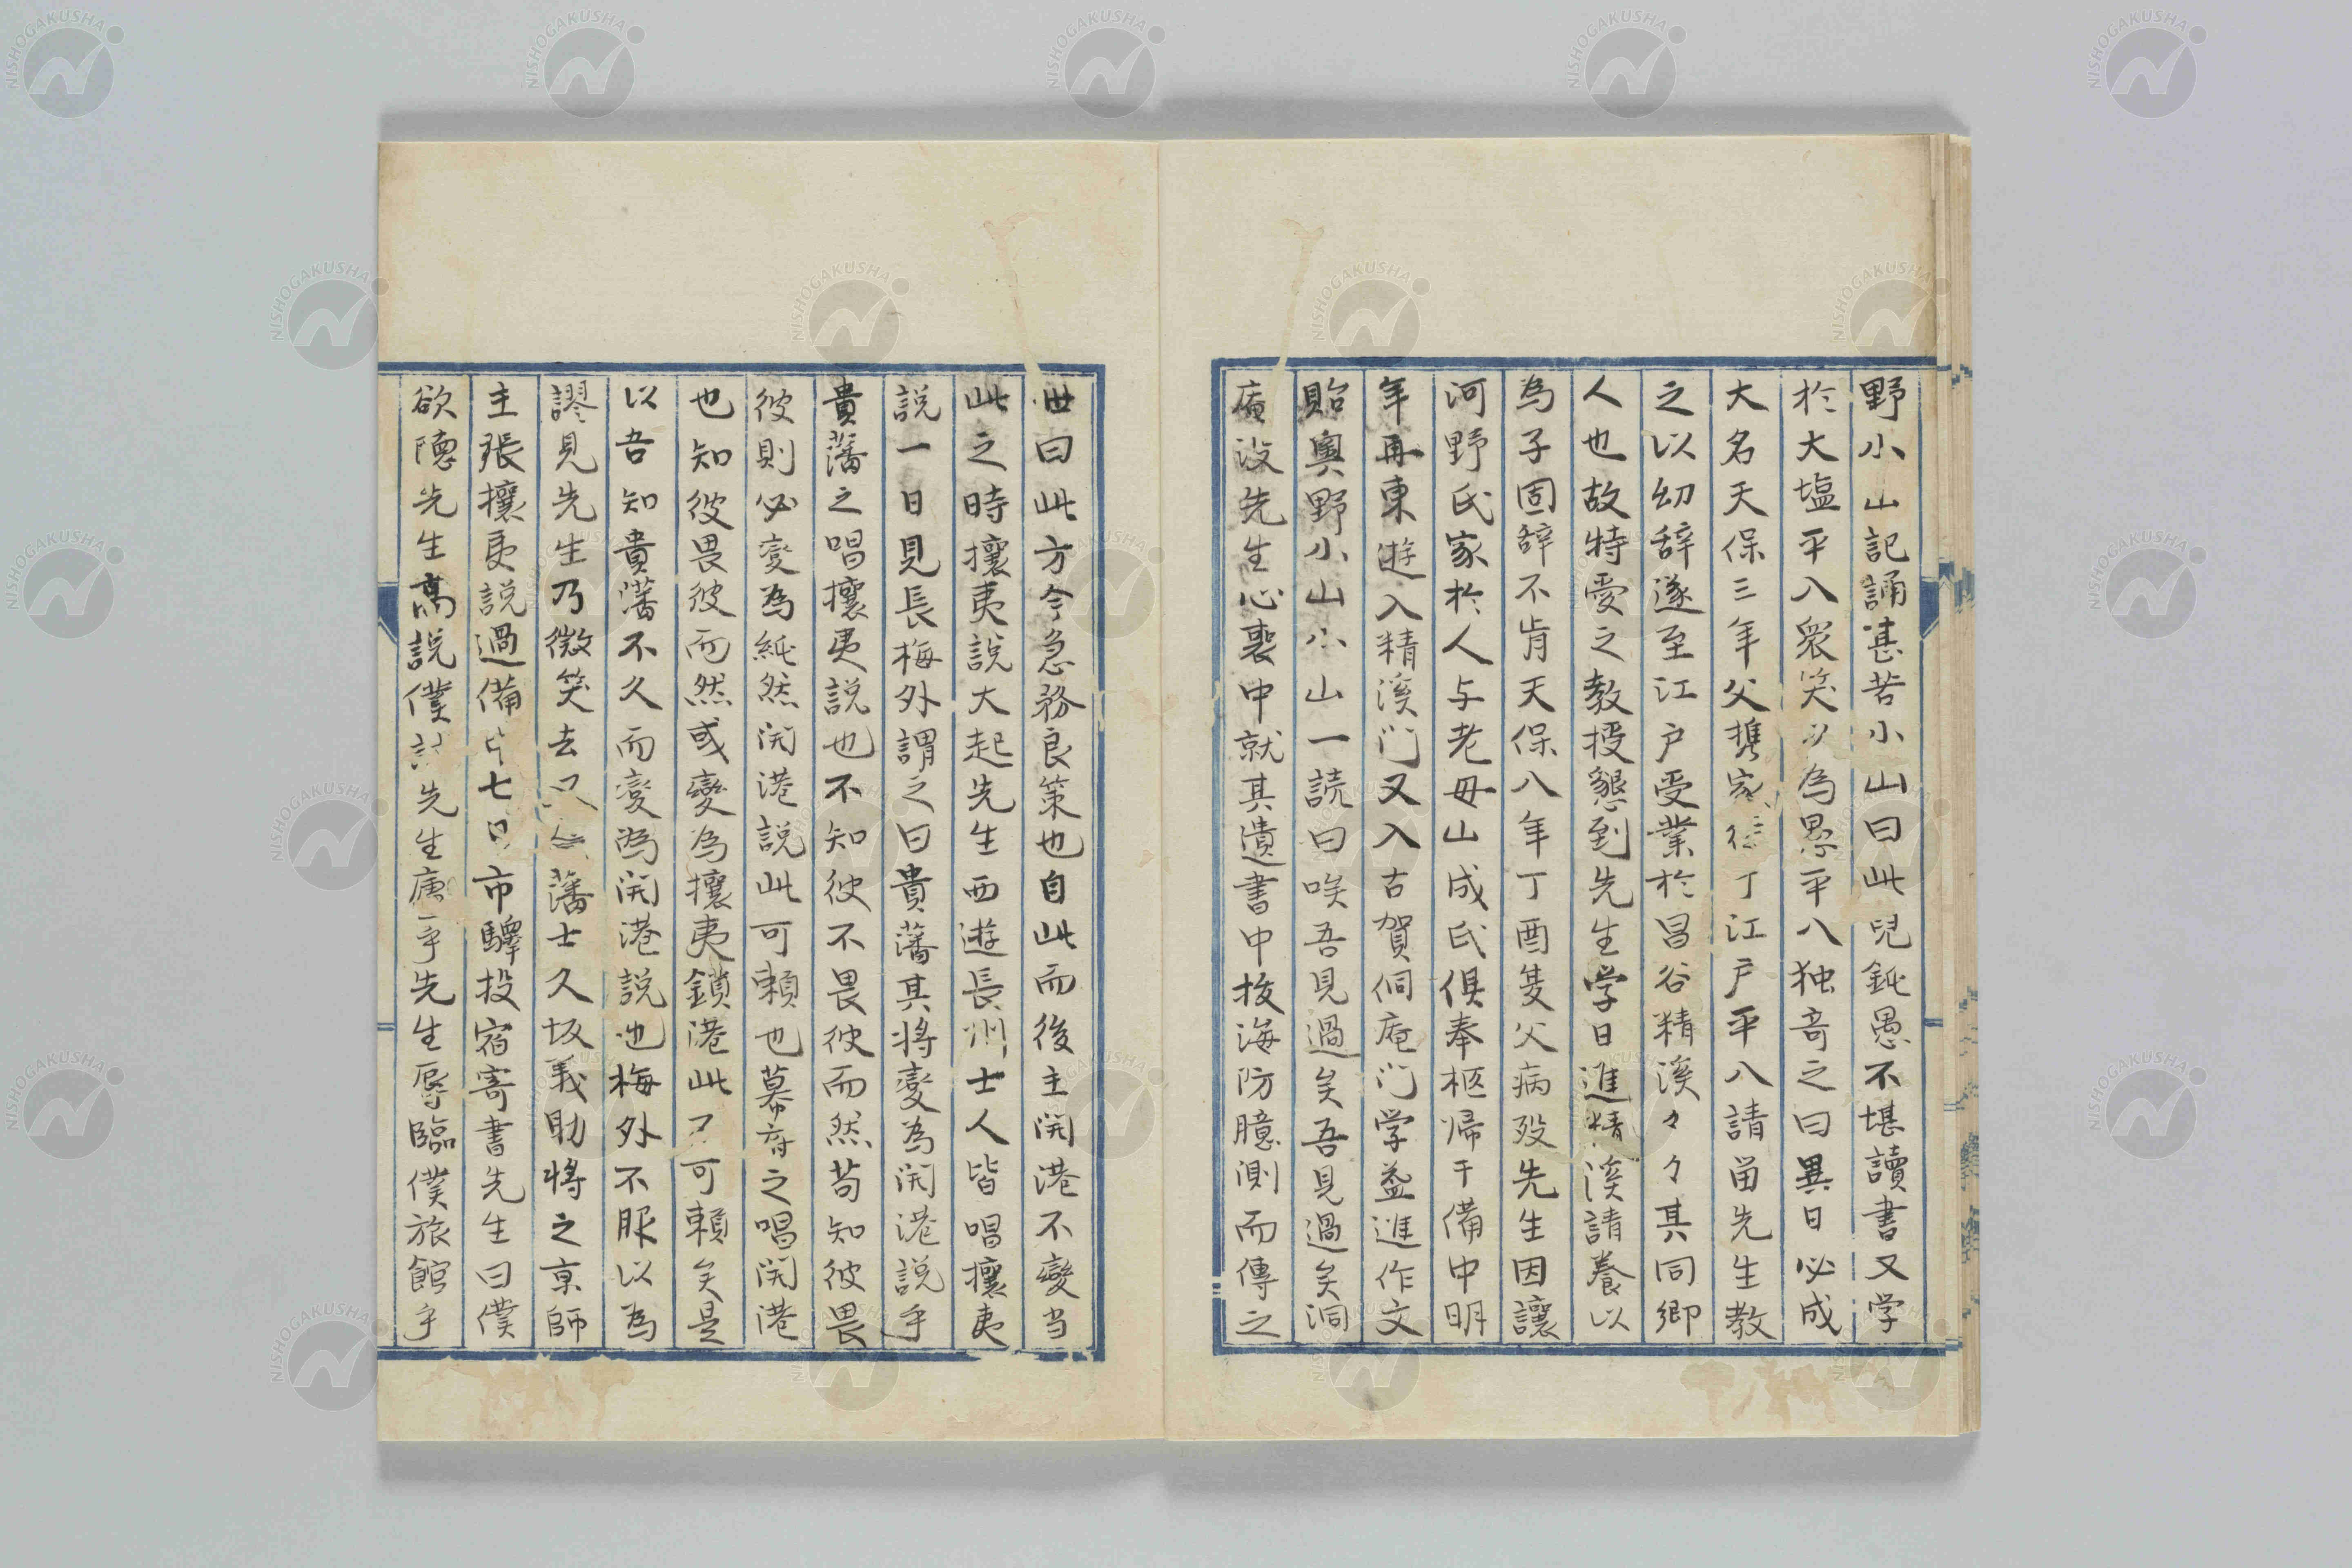 野小山記誦甚苦小山曰此兒鈍愚不堪讀書又学
於大塩平八衆笑以為愚平八独奇之曰異日必成
大名天保三年父携家徙丁江戸平八請留先生教
之以幼辞遂至江戸受業於昌谷精溪々々其同郷
人也故特愛之教授懇到先生学日進精溪請養以
為子固辞不肯天保八年丁酉隻父病歿先生因讓
河野氏家於人与老毋山成氏倶奉柩帰干備中明
年再東遊入精溪门又入古賀侗庵门学益進作文
貽奥野小山小山一読曰唉吾見過矣吾見過矣洞
庵没先生心喪中就其遺書中抜海防臆測而傳之
世曰此方今急務良策也自此而後主開港不變当
此之時攘夷説大起先生西遊長州士人皆唱攘夷
説一日見長梅外謂之曰貴藩其将變為開港説乎
貴藩之唱攘夷説也不知彼不畏彼而然苟知彼畏
彼則必變為純然開港説此可頼也幕府之唱開港
也知彼畏彼而然或變為攘夷鎖港此不可頼矣是
以吾知貴藩不久而變為開港説也梅外不服以為
謬見先生乃微笑去又藩士久坂義助将之京師
主張攘夷説過備中七日市驛投宿寄書先生曰僕
欲聴先生高説僕詣先生廬乎先生辱臨僕旅館乎